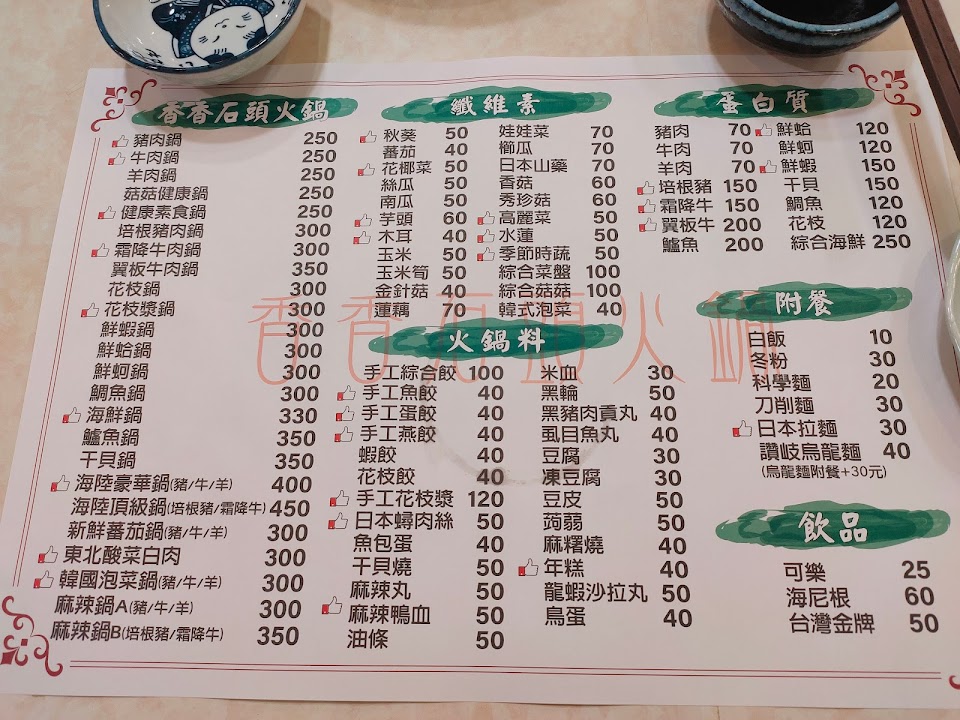 香香石頭火鍋
豬肉鍋 250
牛肉鍋 250
羊肉鍋 250
菇菇健康鍋 250
健康素食鍋 250
培根豬肉鍋 300
霜降牛肉鍋 300
翼板牛肉鍋 350
花枝鍋 300
花枝漿鍋 300
鮮蝦鍋 300
鮮蛤鍋 300
鮮蚵鍋 300
鯛魚鍋 300
海鮮鍋 330
鱸魚鍋 350
干貝鍋 350
海陸豪華鍋(豬/牛/羊) 400
海陸頂級鍋(培根豬/霜降牛) 450
新鮮蕃茄鍋(豬/牛/羊) 300
東北酸菜白肉 300
韓國泡菜鍋(豬/牛/羊) 300
麻辣鍋A(豬/牛/羊) 300
麻辣鍋B(培根豬/霜降牛) 350
纖維素
秋葵 50
蕃茄 40
花椰菜 50
絲瓜 50
南瓜 50
芋頭 60
木耳 40
玉米 50
玉米筍 50
金針菇 40
蓮藕 70
娃娃菜 70
櫛瓜 70
日本山藥 70
香菇 60
秀珍菇 60
高麗菜 50
水蓮 50
季節時蔬 50
綜合菜盤 100
綜合菇菇 100
韓式泡菜 40
火鍋料
手工綜合餃 100
手工魚餃 40
手工蛋餃 40
手工燕餃 40
蝦餃 40
花枝餃 40
手工花枝漿 120
日本蟳肉絲 50
魚包蛋 40
干貝燒 50
麻辣丸 50
麻辣鴨血 50
油條 50
米血 30
黑輪 50
黑豬肉貢丸 40
虱目魚丸 40
豆腐 30
凍豆腐 30
豆皮 50
蒟蒻 50
麻糬燒 40
年糕 40
龍蝦沙拉丸 50
鳥蛋 40
蛋白質
豬肉 70
牛肉 70
羊肉 70
培根豬 150
霜降牛 150
翼板牛 200
鱸魚 200
鮮蛤 120
鮮蚵 120
鮮蝦 150
干貝 150
鯛魚 120
花枝 120
綜合海鮮 250
附餐
白飯 10
冬粉 30
科學麵 20
刀削麵 30
日本拉麵 30
讚岐烏龍麵 40
(烏龍麵附餐+30元)
飲品
可樂 25
海尼根 60
台灣金牌 50
香香石頭火鍋